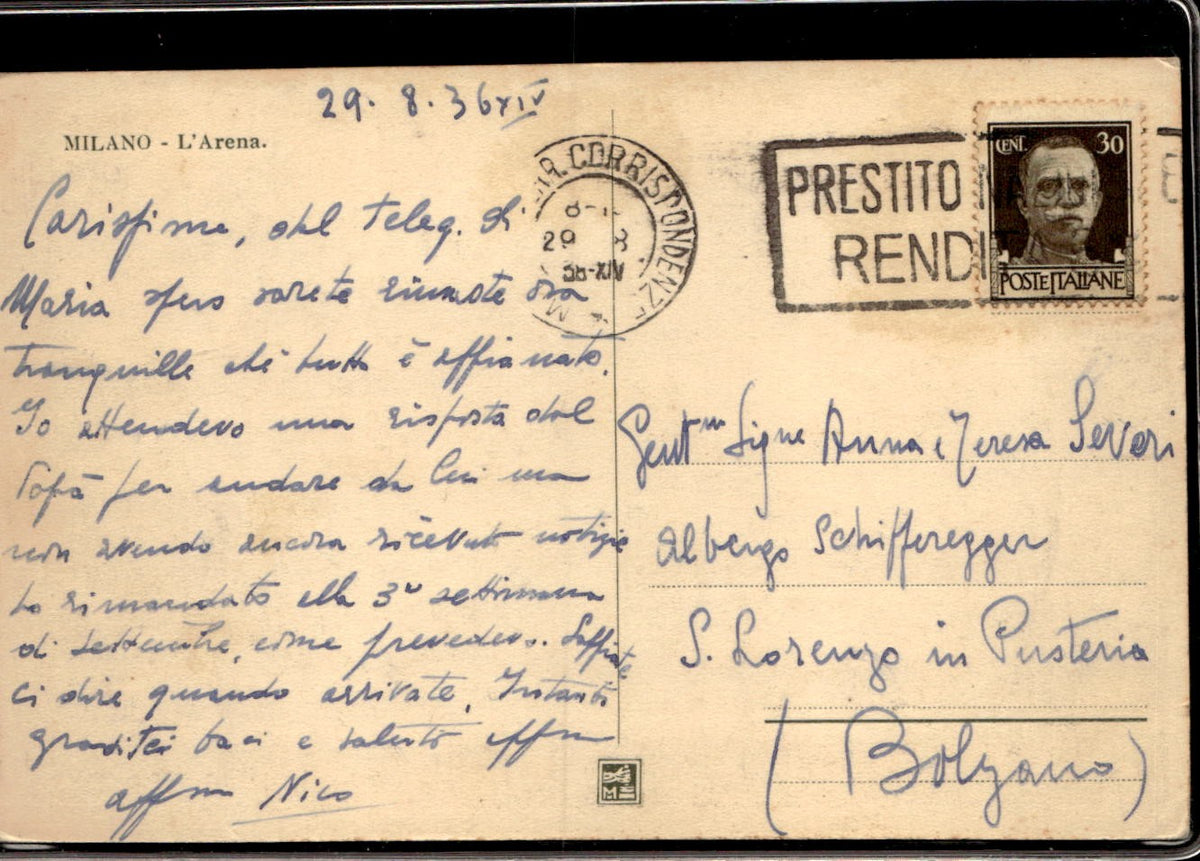 29. 8. 36 XIV
MILANO - L'Arena.
Carissime, dal teleg. di
Maria spero sarete rimaste ora
tranquille chè tutto è appianato.
Io attendevo una risposta dal
Papà per andare da lui ma
non avendo ancora ricevuto notizie
ho rimandato alla 3ª settimana
di settembre, come prevedevo.
ci dire quando arrivate. Intanto
graditei baci e saluto affmo
affmo Nico
CORRISPONDENZE
29 8
36-XIV
M
PRESTITO NA
RENDITA
CENT. 30
POSTE ITALIANE
Gentme Signe Anna e Teresa Severi
Albergo Schifferegger
S. Lorenzo in Pusteria
(Bolzano)